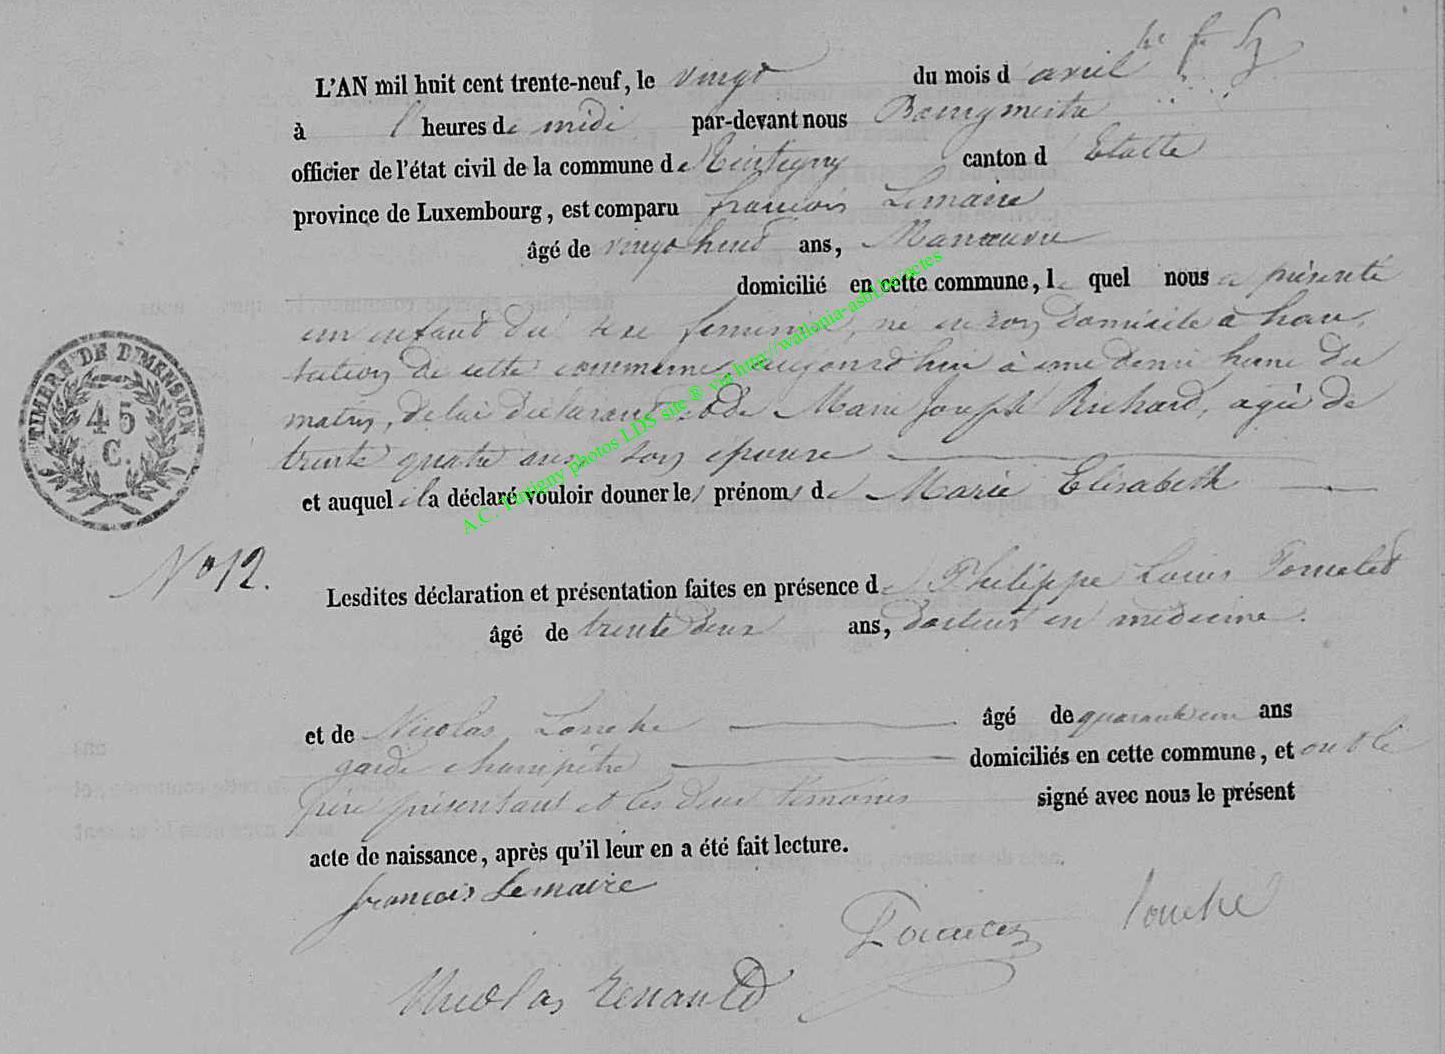 L'AN mil huit cent trente-neuf, le vingt du mois d'avril
à l heures de midi par-devant nous Bourgmestre
officier de l'état civil de la commune de Tintigny canton d'Etalle
province de Luxembourg, est comparu françois Lemaire
âgé de vingt huit ans, Manœuvre
domicilié en cette commune, lequel nous a présenté
un enfant du sexe féminin, né en son domicile à han,
section de cette commune, aujourd'hui à une demie heure du
matin, de lui déclarant et de Marie Joseph Richard, agée de
trente quatre ans son épouse
et auquel il a déclaré vouloir douner les prénoms de Marie Elisabeth
TIMBRE DE DIMENSION
45
C.
N° 12.
Lesdites déclaration et présentation faites en présence de Philippe Louis
âgé de trente deux ans, docteur en médecine.
et de Nicolas Louche âgé de quarante un ans
garde champêtre domiciliés en cette commune, et ont le
père présentant et les deux témoins signé avec nous le présent
acte de naissance, après qu'il leur en a été fait lecture.
françois Lemaire
Louche
Nicolas Renauld
A.C. Tintigny photos LDS site ® via http://wallonia-asbl.be/actes